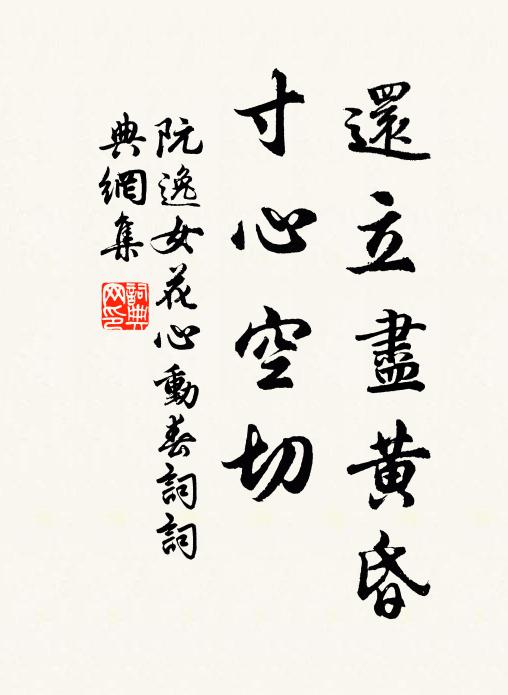 還立盡黃昏
寸心空切
阮逸女花心動春詞詞
典網集
詞典網印